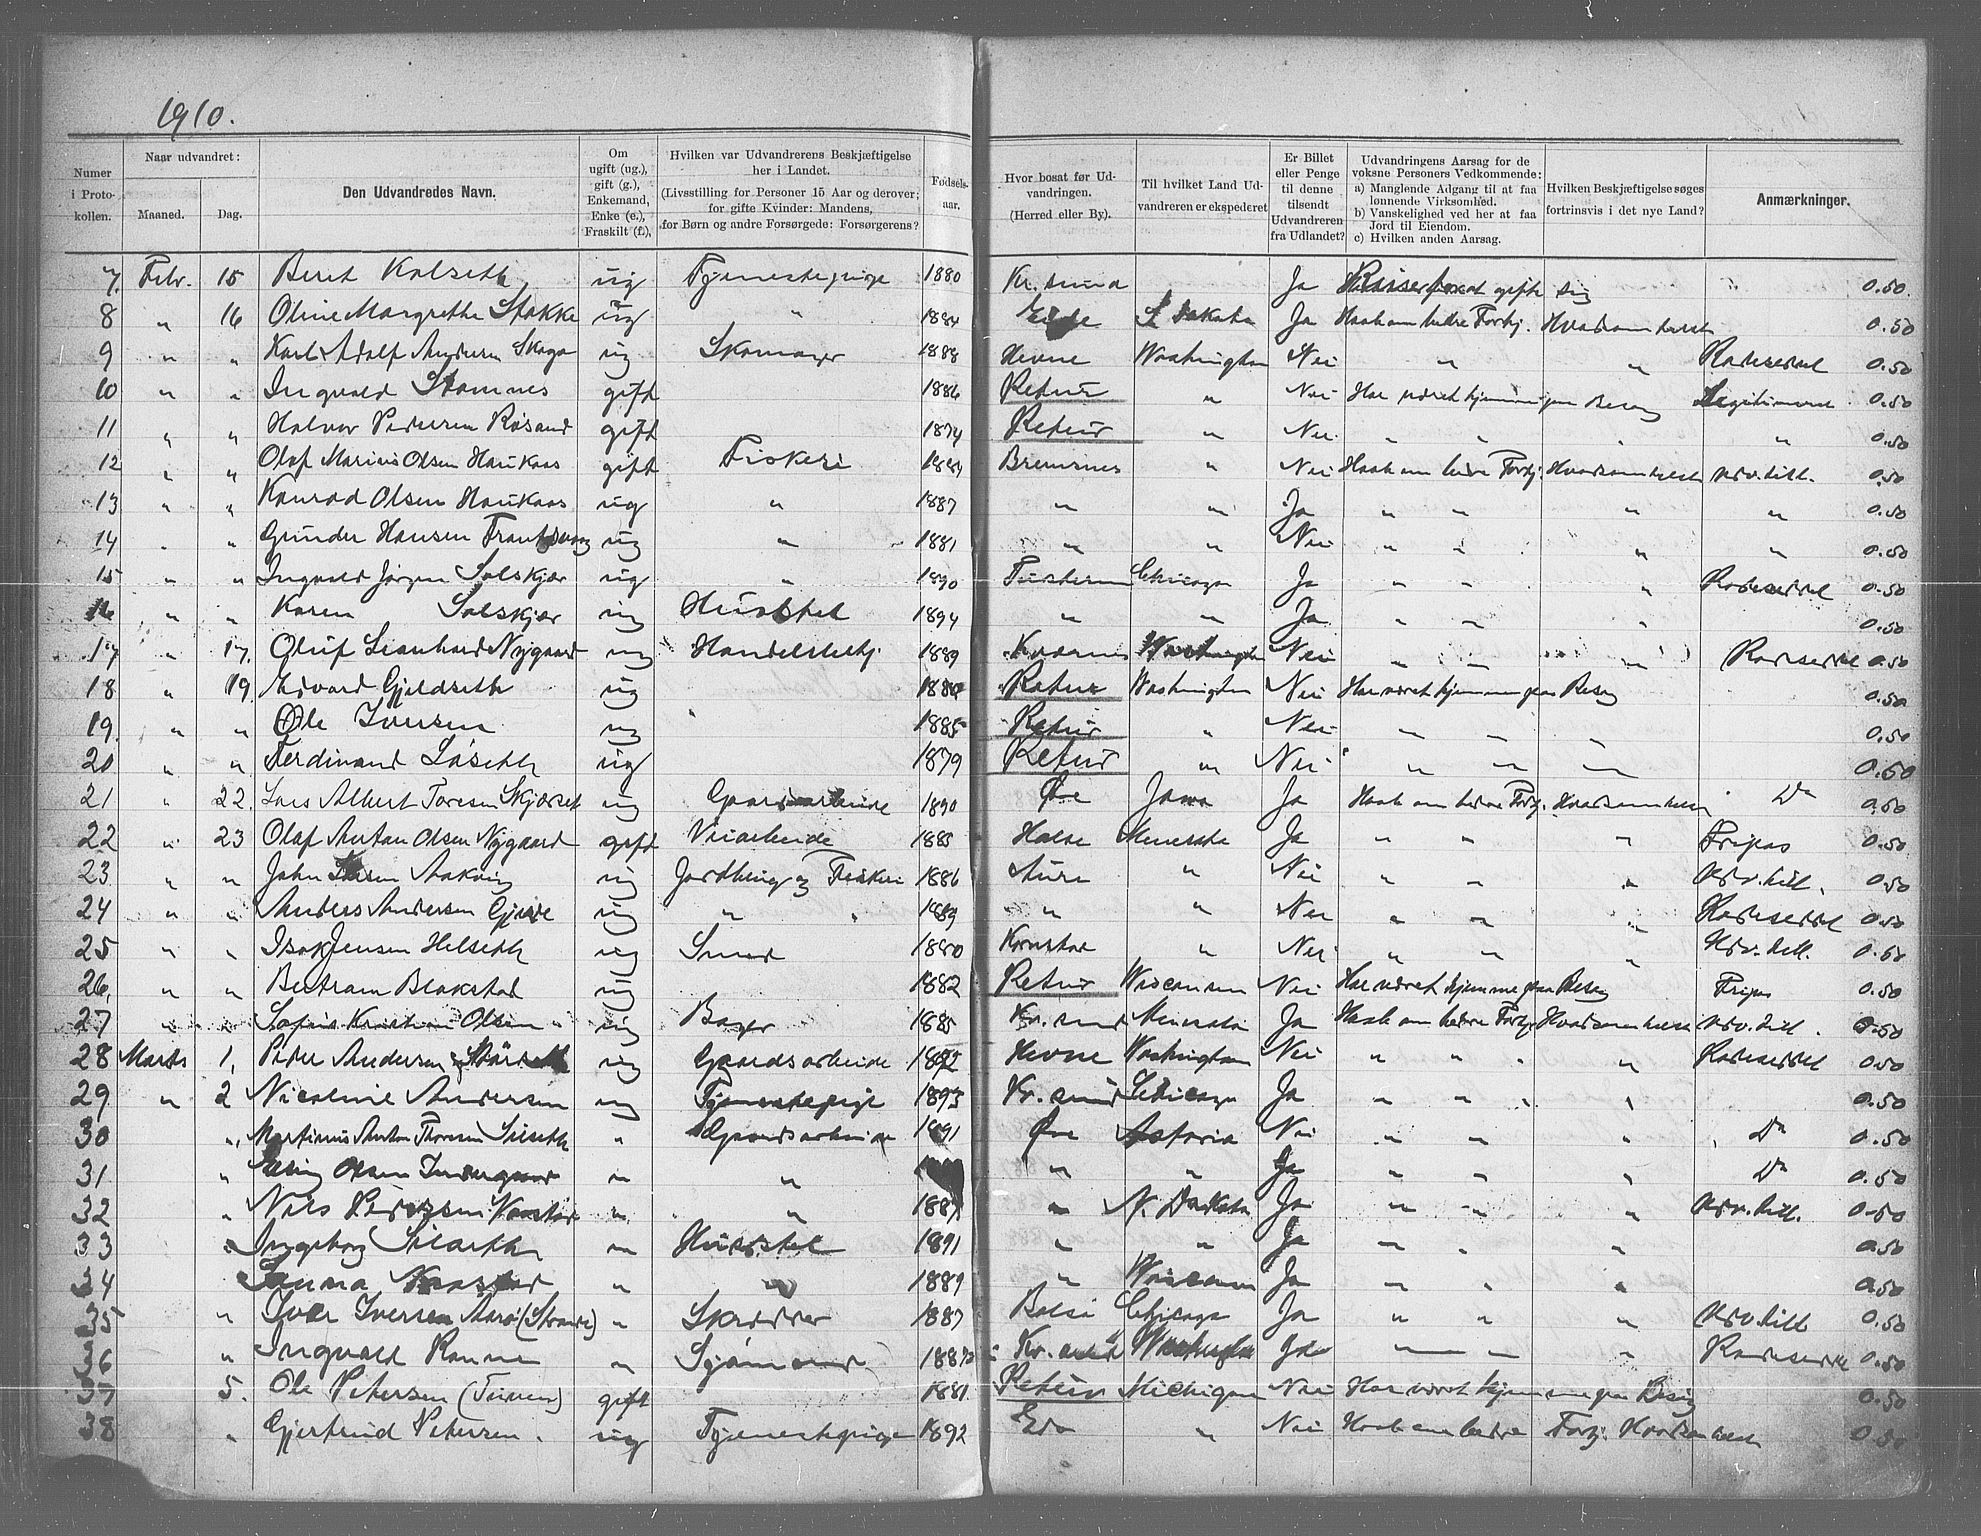 1910.
Numer i Protokollen. | Naar udvandret: Maaned. Dag. | Den Udvandredes Navn. | Om ugift (ug.), gift (g.), Enkemand, Enke (e.), Fraskilt (f.), | Hvilken var Udvandrerens Beskjæftigelse her i Landet. (Livsstilling for Personer 15 Aar og derover; for gifte Kvinder: Mandens, for Børn og andre Forsørgede: Forsørgerens? | Fødselsaar. | Hvor bosat før Udvandringen. (Herred eller By). | Til hvilket Land Udvandreren er ekspederet | Er Billet eller Penge til denne tilsendt Udvandreren fra Udlandet? | Udvandringens Aarsag for de voksne Personers Vedkommende: a) Manglende Adgang til at faa lønnende Virksomhed. b) Vanskelighed ved her at faa Jord til Eiendom. c) Hvilken anden Aarsag. | Hvilken Beskjæftigelse søges fortrinsvis i det nye Land? | Anmærkninger.
7. Febr. 15 Beret Kalseth ug Tjenestepige 1880 Kr. sund Ja gifte sig 0.50
8 " 16 Oline Margrethe Stokke ug " 1884 Eide S Dakota Ja Haab om bedre Fortj. Hvadsomhelst 0.50
9 " " Karl Adolf Andersen Skaga ug Skomager 1888 Hevne Washington Nei " " 0.50
10 " " Ingvald Stamnes gift 1886 Retur " Nei Har været hjemme paa Besøg Legitimeret 0.50
11 " " Halvor Pedersen Røsand gift 1874 Retur " Nei " " " " 0.50
12 " " Olaf Marius Olsen Haukaas gift Fiskeri 1884 Bremsnes " Nei Haab om bedre Fortj. Hvadsomhelst Udv. till. 0.50
13 " " Konrad Olsen Haukaas ug " 1887 " " Ja " " " " 0.50
14 " " Gunder Hansen ug " 1881 " " Nei " " " " 0.50
15 " " Ingvald Jørgen Solskjær ug " 1890 Tusteren Chicago Ja " " 0.50
16 " " Karen Solskjær ug Husstel 1894 " " Ja " " " 0.50
17 " 17. Oluf Leonhard Nygaard ug Handelsbetj. 1889 Kvernes Washington Nei " " " 0.50
18 " 19 Edvard Gjeldseth ug Retur Washington Nei Har været hjemme paa Besøg 0.50
19. " " Ole Iversen ug 1885 Retur " Nei " " " 0.50
20 " " Ferdinand Løseth ug 1879 Retur " Nei " " " 0.50
21 " 22. Lars Albert Toresen Skjærset ug Gaardsarbeide 1890 Øre Ja Haab om bedre Fortj. Hvadsomhelst Do 0.50
22 " 23 Olaf Anton Olsen Nygaard gift Veiarbeide 1885 Halse Minesota Ja " " " Fripas 0.50
23 " " John Aakvig ug Jordbrug og Fiskeri 1886 Aure " Nei " " " Udv. till. 0.50
24 " " Anders Andersen Gjede ug " " " " Nei " " " 0.50
25 " " Isak Jensen Helseth ug Smed 1880 Kornstad " Nei " " " Udv. till. 0.50
26. " " Bertram Blakstad ug 1882 Retur Wisconsin Nei Har været hjemme paa Besøg Fripas 0.50
27 " " Sofus Kristian Olsen ug Bager 1885 Kr. sund Minesota Ja Haab om bedre Fortj. Hvadsomhelst Udv. till. 0.50
28 Marts 1. Peder Andersen ug Gaardsarbeide 1892 Hevne Washington Nei " " " " 0.50
29. " 2 Nicoline Andersen ug Tjenestepige 1893 Kr. sund Chicago Ja " " " " 0.50
30 " Martinus Anton Thoresen Silseth " Gaardsarbeide 1891 Øre Astoria Nei " " " Do 0.50
31 " Olsen Indergaard " " " " Ja " " " Do 0.50
32 " Nils Pedersen " " " N. Dakota Ja " " " Udv. till. 0.50
33 " Ingeborg Silseth " Husstel 1891 " " Ja " " " 0.50
34 Janna " " 1889 " Wisconsin Ja " " " 0.50
35 " Iver Iversen Aarø (Strande) " Skrædder 1887 Bolsø Chicago Ja " " " Udv. till. 0.50
36 " Ingvald " Sjømand Kr. sund Washington Ja " " " 0.50
37 5. Ole Petersen gift 1881 Retur Michigan Nei Har været hjemme paa Besøg 0.50
38 " Gjertrud Petersen. ug Tjenestepige 1892 " Nei Haab om bedre Fortj. Hvadsomhelst 0.50